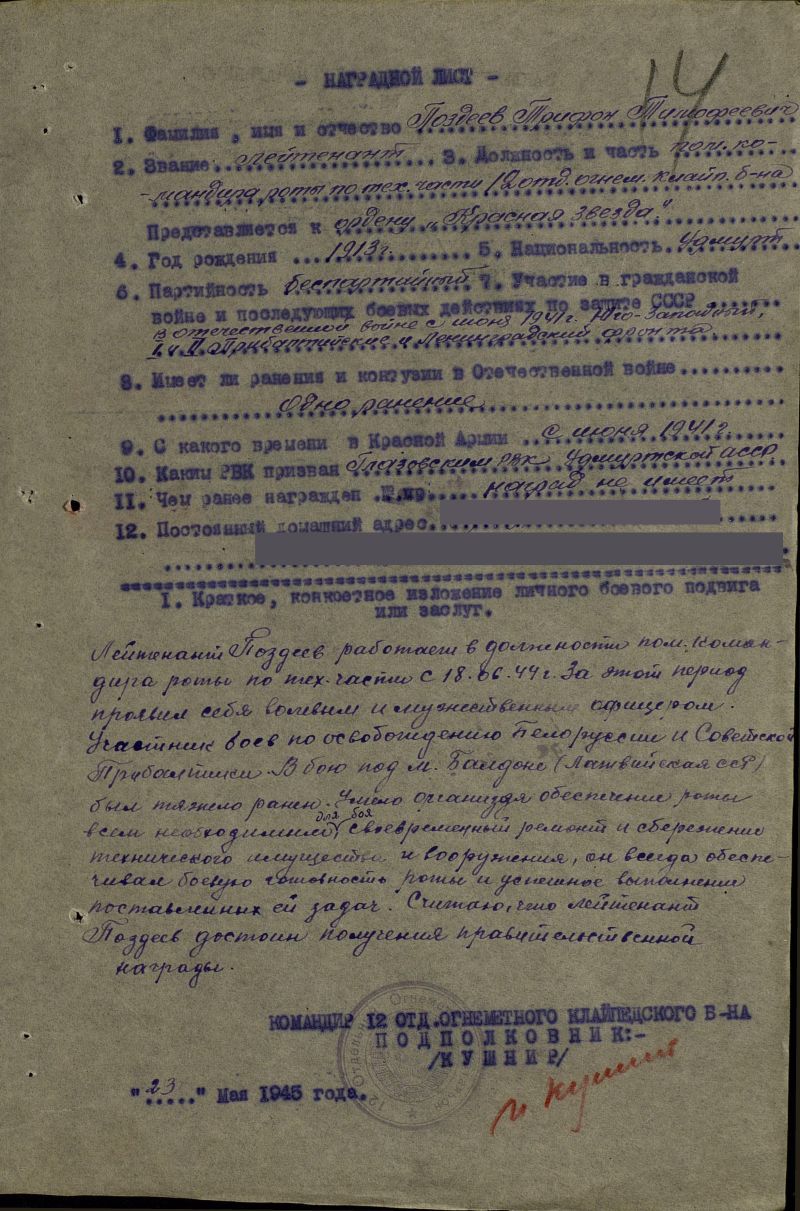 14
- НАГРАДНОЙ ЛИСТ -
1. Фамилия, имя и отчество Поздеев Трифон Тимофеевич
2. Звание лейтенант 3. Должность и часть пом. ко-
мандира роты по тех. части 12 отд. огнем. клайп. б-на
Представляется к ордену "Красная звезда"
4. Год рождения 1913 г. 5. Национальность удмурт
6. Партийность беспартийный 7. Участие в гражданской
войне и последующих боевых действиях по защите СССР
в отечественной войне с июня 1941 г. Юго-Западный,
I и II Прибалтийские и Ленинградский фронта
8. Имеет ли ранения и контузии в Отечественной войне
одно ранение
9. С какого времени в Красной Армии с июня 1941 г.
10. Каким РВК призван Глазовским РВК Удмуртской АССР
11. Чем ранее награжден наград не имеет
12. Постоянный домашний адрес
I. Краткое, конкретное изложение личного боевого подвига
или заслуг.
Лейтенант Поздеев работает в должности пом. коман-
дира роты по тех. части с 18.06.44 г. За этот период
проявил себя волевым и мужественным офицером.
Участник боев по освобождению Белоруссии и Советской
Прибалтики. В бою под м. Балдоне (Латвийская ССР)
был тяжело ранен. Умело организуя обеспечение роты
всем необходимым для боя, своевременный ремонт и сбережение
технического имущества и вооружения, он всегда обеспе-
чивал боевую готовность роты и успешное выполнение
поставленных ей задач. Считаю, что лейтенант
Поздеев достоин получения правительственной
награды.
КОМАНДИР 12 ОТД.ОГНЕМЕТНОГО КЛАЙПЕДСКОГО Б-НА
ПОДПОЛКОВНИК:-
/КУШНИР/
"23" Мая 1945 года.